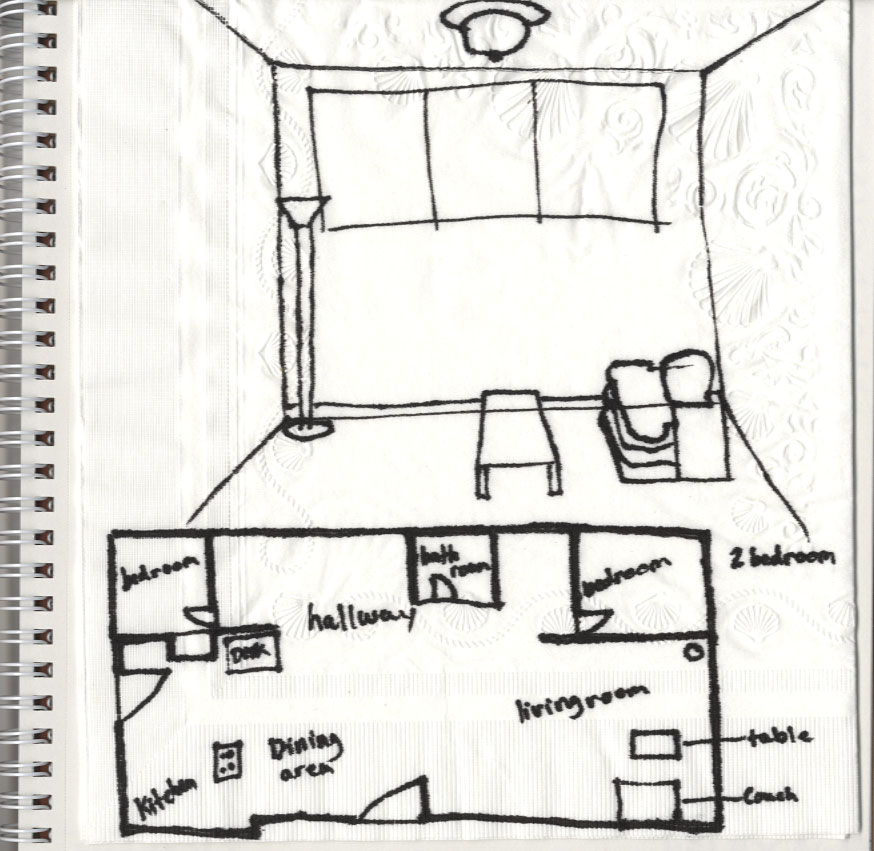 bedroom
bath
room
bedroom
2 bedroom
hallway
Desk
livingroom
table
Dining
area
Kitchen
Couch